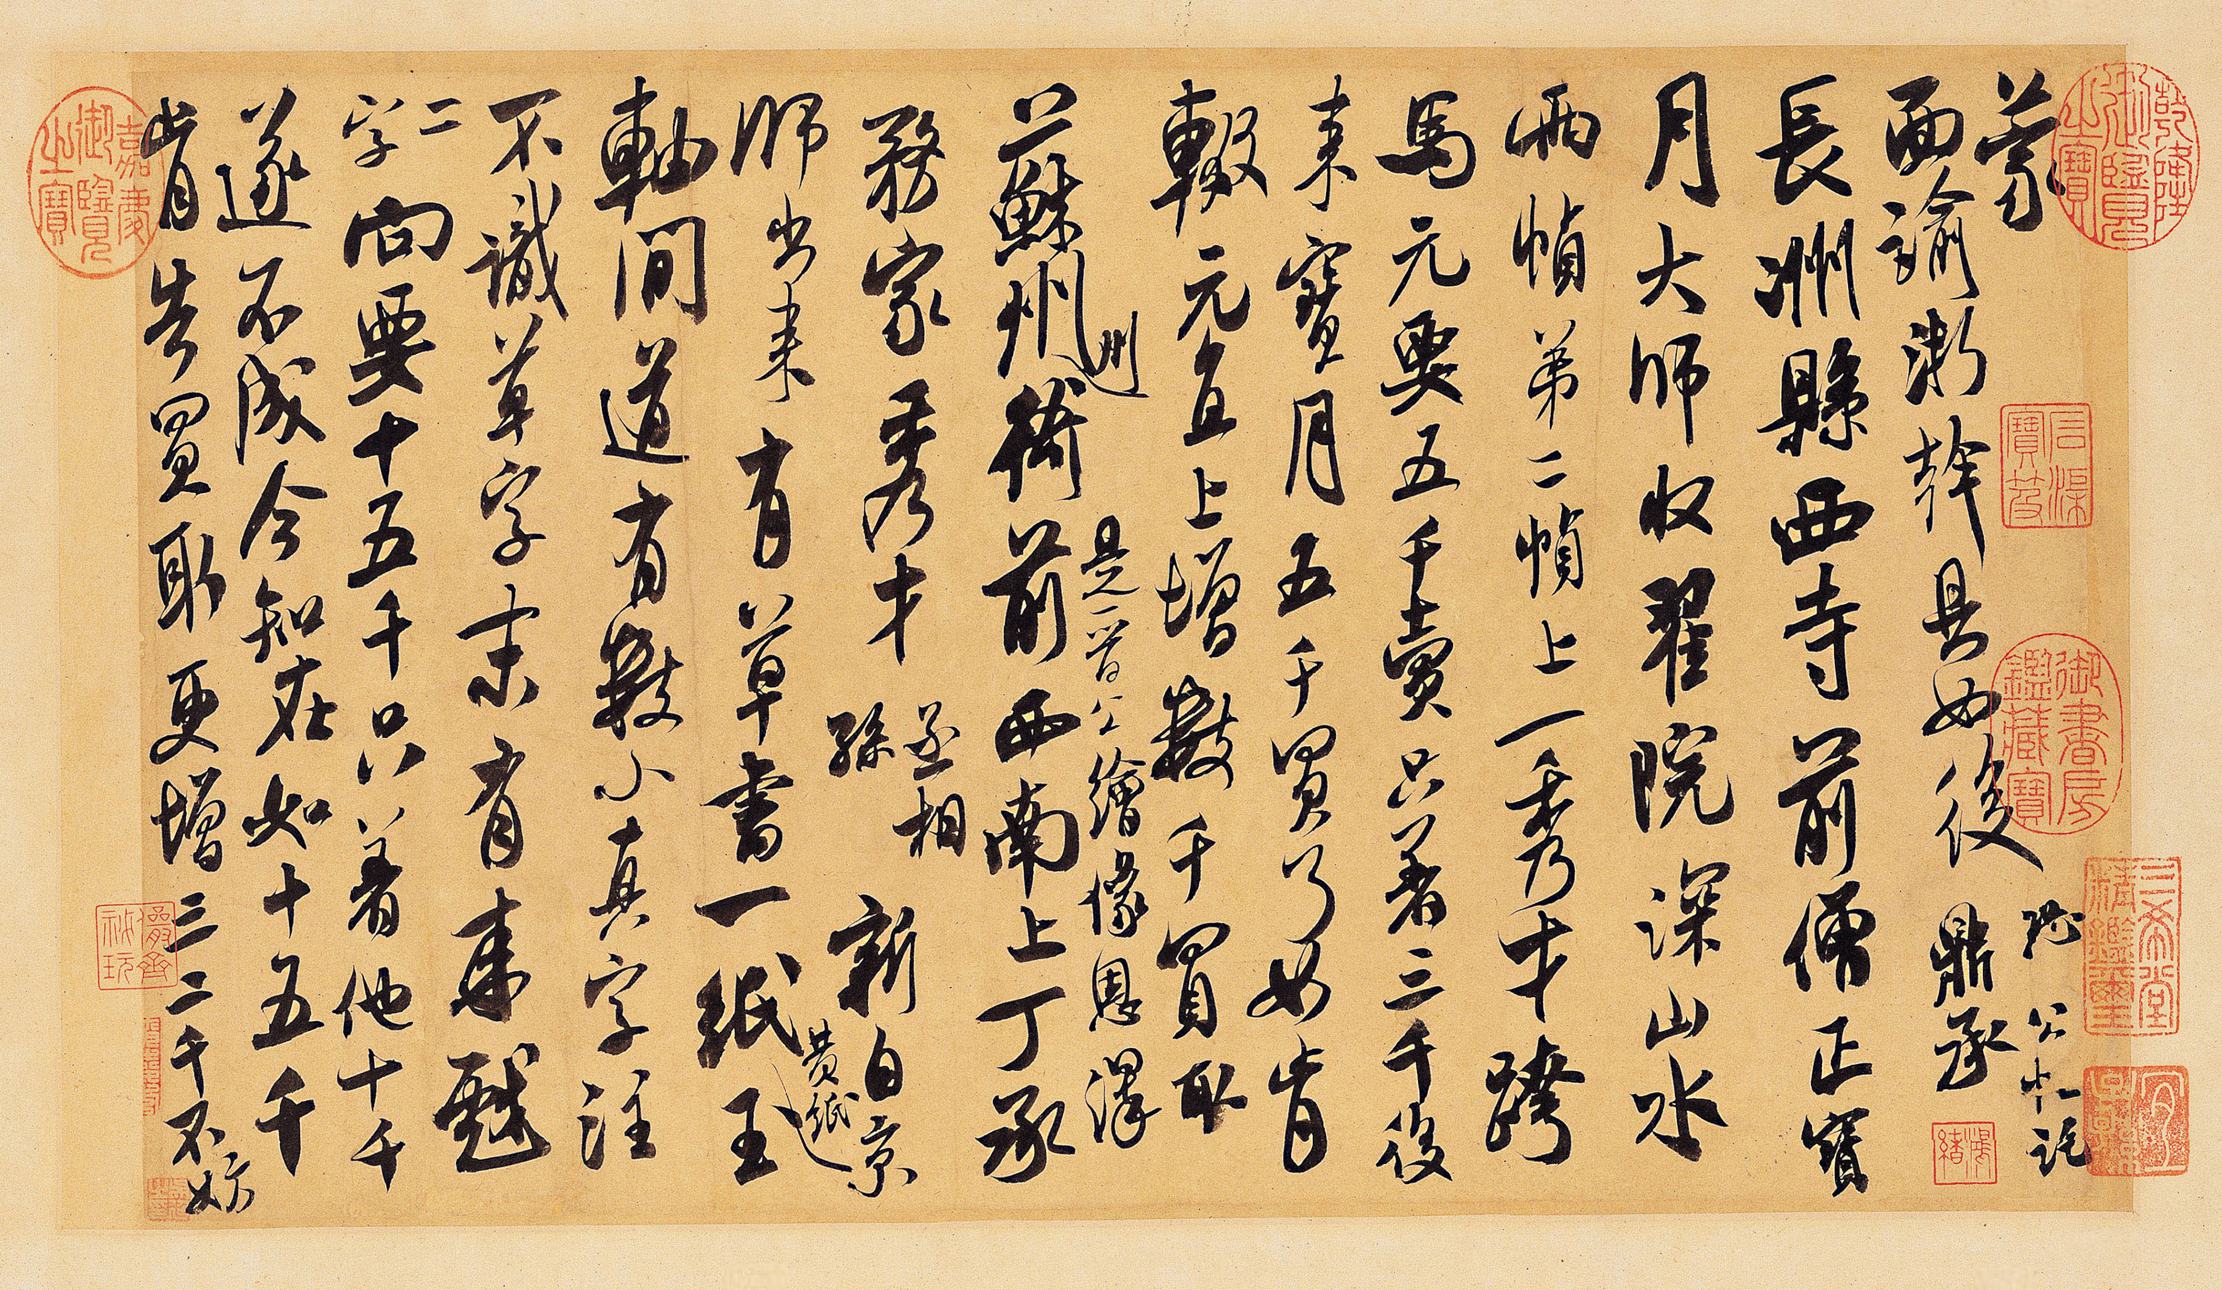 蒙
面諭浙幹具如後
鼎丞
長洲縣西寺前僧正寶
月大師收翟院深山水
兩幀第二幀上一秀才跨
馬元要五千賣只著三千後
來寶月五千買了如肯
輟元直上增數千買取
蘇州州衙前西南上丁承
是一片白繪像恩澤
務家秀才
丞相
孫
新自京
師出來有草書一紙
黄紙
王
軸間道有數小真字注
不識草字末有來戲
二
字向要十五千只着他十千
遂不成今知在如十五千
肯告買取更增三二千不妨
乾隆御覽之寶
石渠寶笈
御書房鑑藏寶
三希堂精鑑璽
宜子孫
嘉慶御覽之寶